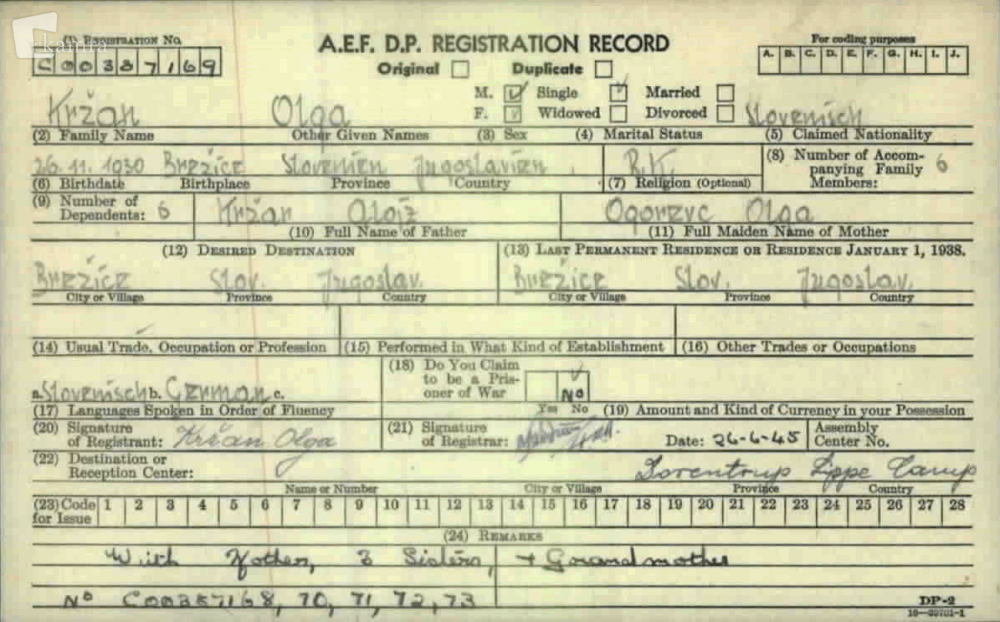 (1) REGISTRATION NO.
A.E.F. D.P. REGISTRATION RECORD
For coding purposes
C00337169
Original Duplicate
A. B. C. D. E. F. G. H. I. J.
M. Single Married
Kržan Olga F. Widowed Divorced Slovenisch
(2) Family Name Other Given Names (3) Sex (4) Marital Status (5) Claimed Nationality
26.11.1930 Brežice Slovenien Jugoslavien R.K. (8) Number of Accompanying Family Members: 6
(6) Birthdate Birthplace Province Country (7) Religion (Optional)
(9) Number of Dependents: 6 Kržan Alojz Ogorevc Olga
(10) Full Name of Father (11) Full Maiden Name of Mother
(12) DESIRED DESTINATION (13) LAST PERMANENT RESIDENCE OR RESIDENCE JANUARY 1, 1938.
Brežice Slov. Jugoslav. Brežice Slov. Jugoslav.
City or Village Province Country City or Village Province Country
(14) Usual Trade, Occupation or Profession (15) Performed in What Kind of Establishment (16) Other Trades or Occupations
a. Slovenisch b. German c. (18) Do You Claim to be a Prisoner of War No
(17) Languages Spoken in Order of Fluency Yes No (19) Amount and Kind of Currency in your Possession
(20) Signature of Registrant: Kržan Olga (21) Signature of Registrar: Date: 26-6-45 Assembly Center No.
(22) Destination or Reception Center: Dorentrup Lippe Camp
Name or Number City or Village Province Country
(23) Code for Issue 1 2 3 4 5 6 7 8 9 10 11 12 13 14 15 16 17 18 19 20 21 22 23 24 25 26 27 28
(24) REMARKS
With Mother, 3 Sisters, + Grandmother
No C00337168, 70, 71, 72, 73
DP-2